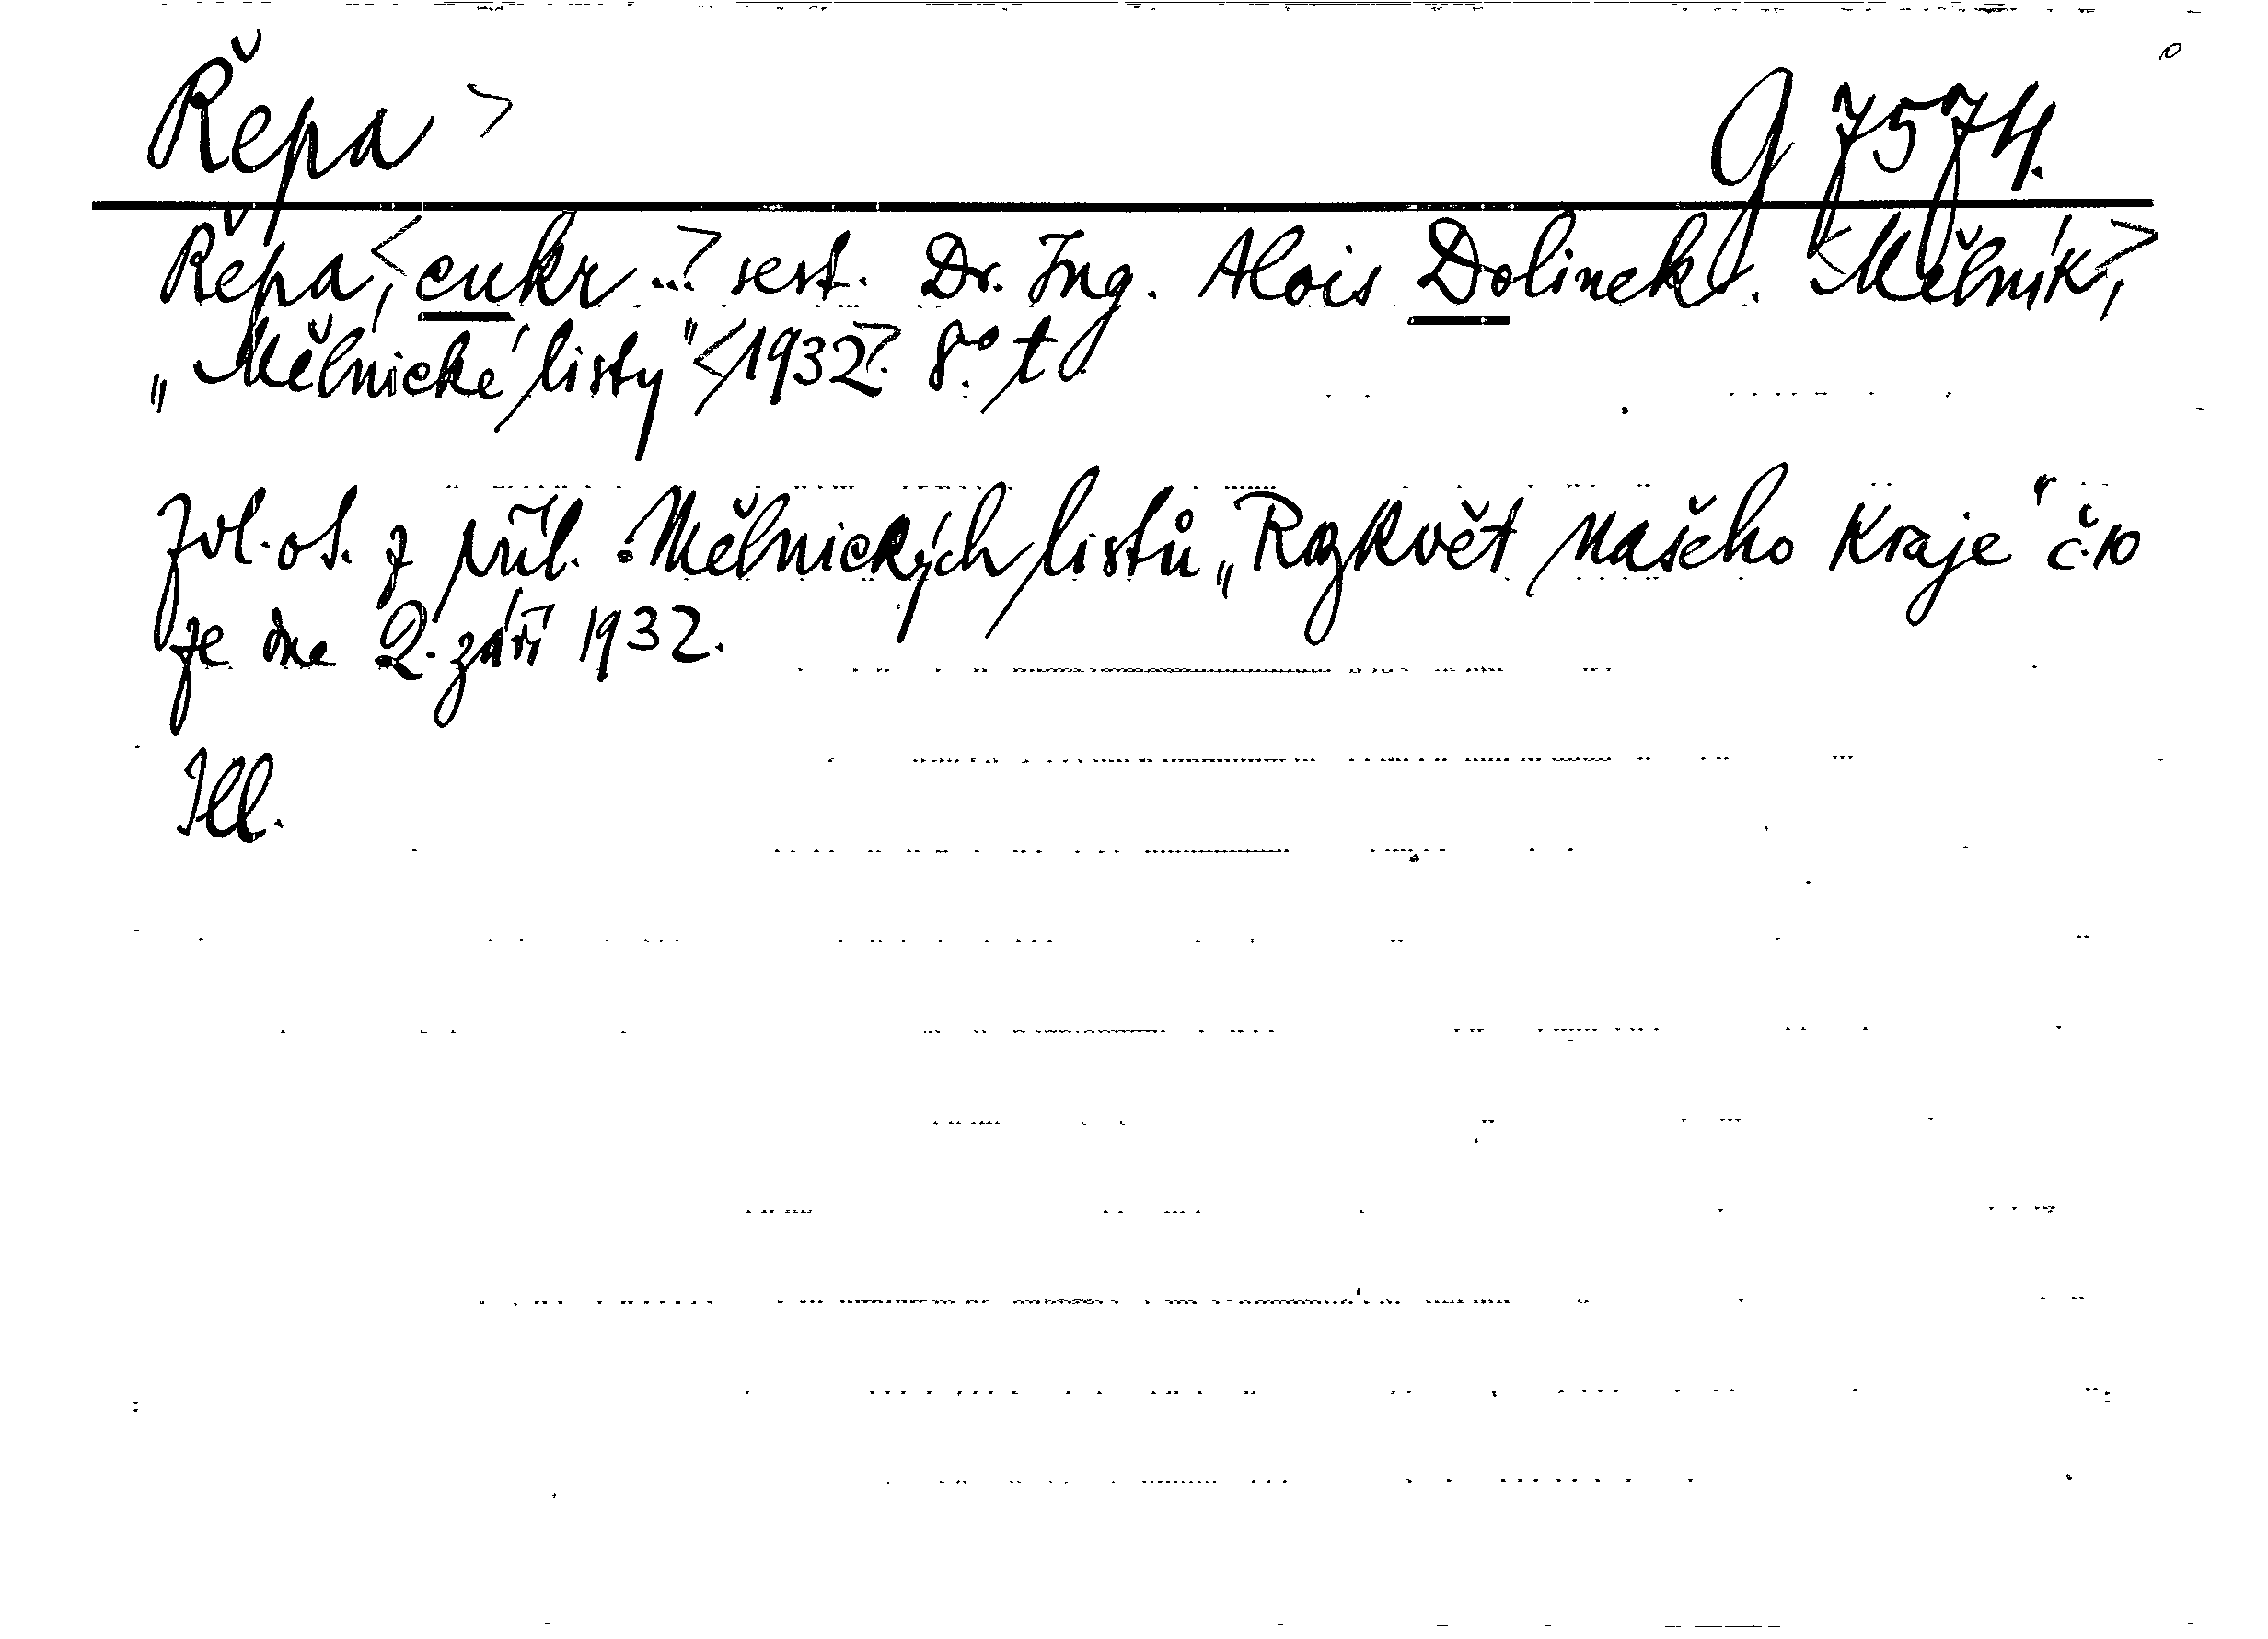 Řepa > g 7574.
Řepa, < cukr ...> sest. Dr. Ing. Alois Dolinek. <Mělník>,
„Mělnické listy" <1932>. 8.° t
Zvl. ot. z příl. Mělnických listů „Rozkvět našeho kraje" č. 10
ze dne 2. září 1932.
Ill.